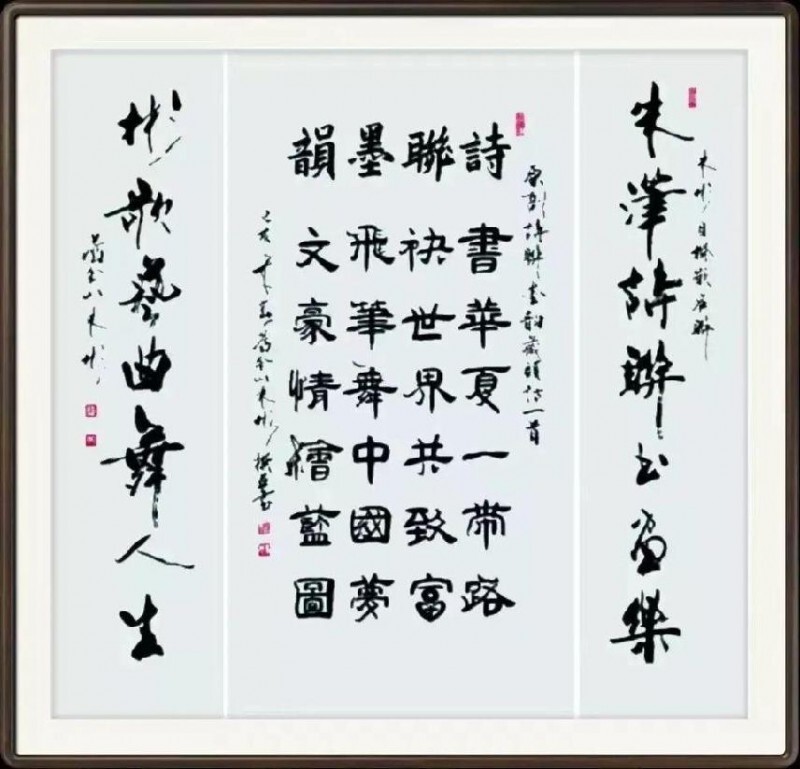 朱彬自撰嵌名聯
朱詩聯书畫樂
原創詩聯墨韵藏頭詩一首
詩書華夏一帶路
聯袂世界共致富
墨飛筆舞中國夢
韻文豪情繪藍圖
己亥年朱彬撰並書
彬歌藝曲舞人生
朱彬